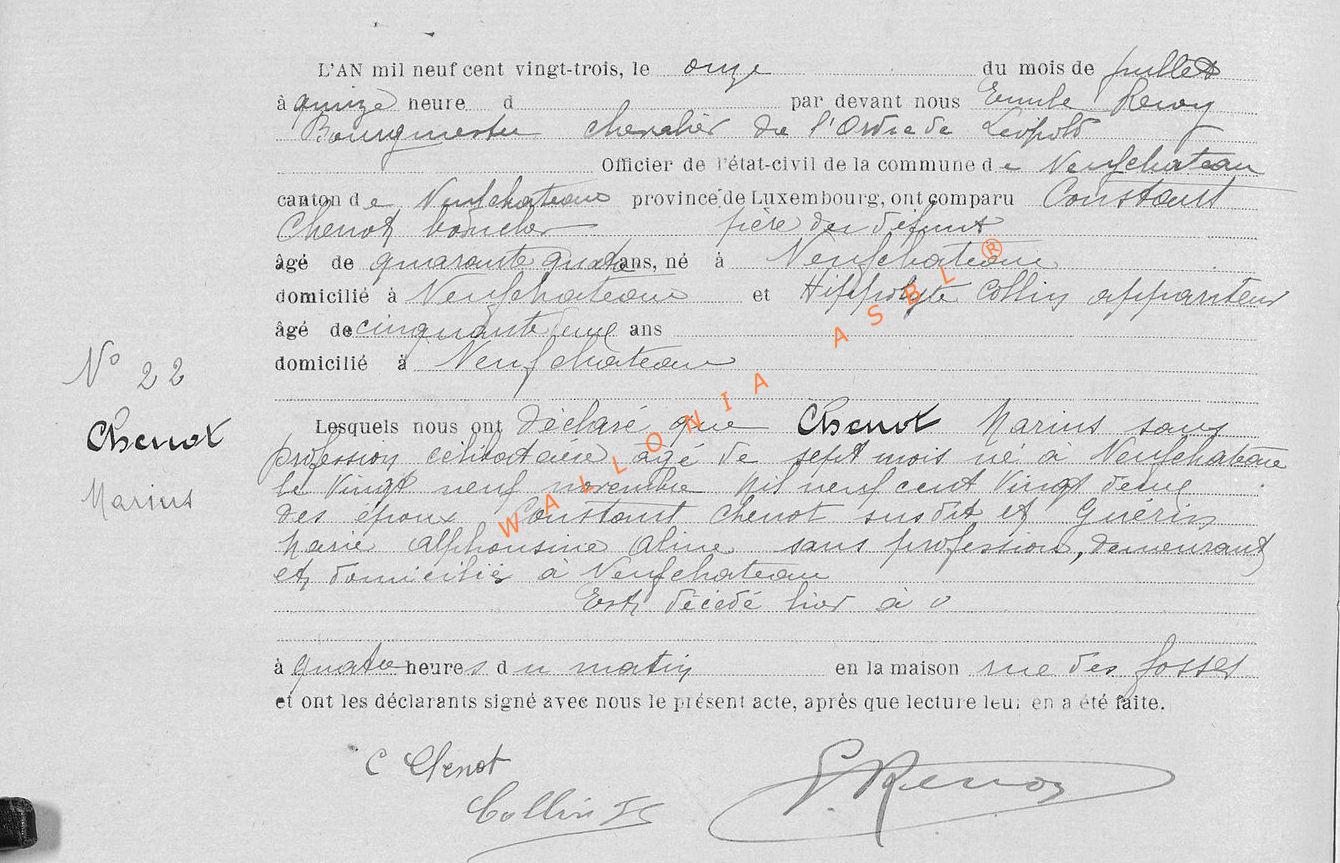 L'AN mil neuf cent vingt-trois, le onze du mois de juillet
à quinze heure d par devant nous Emile
Bourgmestre chevalier de l'Ordre de Léopold
Officier de l'état-civil de la commune de Neufchateau
canton de Neufchateau province de Luxembourg, ont comparu Constant
Chenot boucher père du défunt
âgé de quarante quatre ans, né à Neufchateau
domicilié à Neufchateau et Hippolyte Collin appariteur
âgé de cinquante deux ans
domicilié à Neufchateau
N° 22
Chenot
Marius
Lesquels nous ont déclaré que Chenot Marius sans
profession célibataire âgé de sept mois né à Neufchateau
le vingt neuf novembre mil neuf cent vingt deux
des époux Constant Chenot susdit et Guérin
Marie Alphonsine Aline sans profession, demeurant
et domiciliés à Neufchateau
Est décédé hier à
à quatre heures du matin en la maison rue des fossés
et ont les déclarants signé avec nous le présent acte, après que lecture leur en a été faite.
C Chenot
Collin
WALLONIA ASBL ®